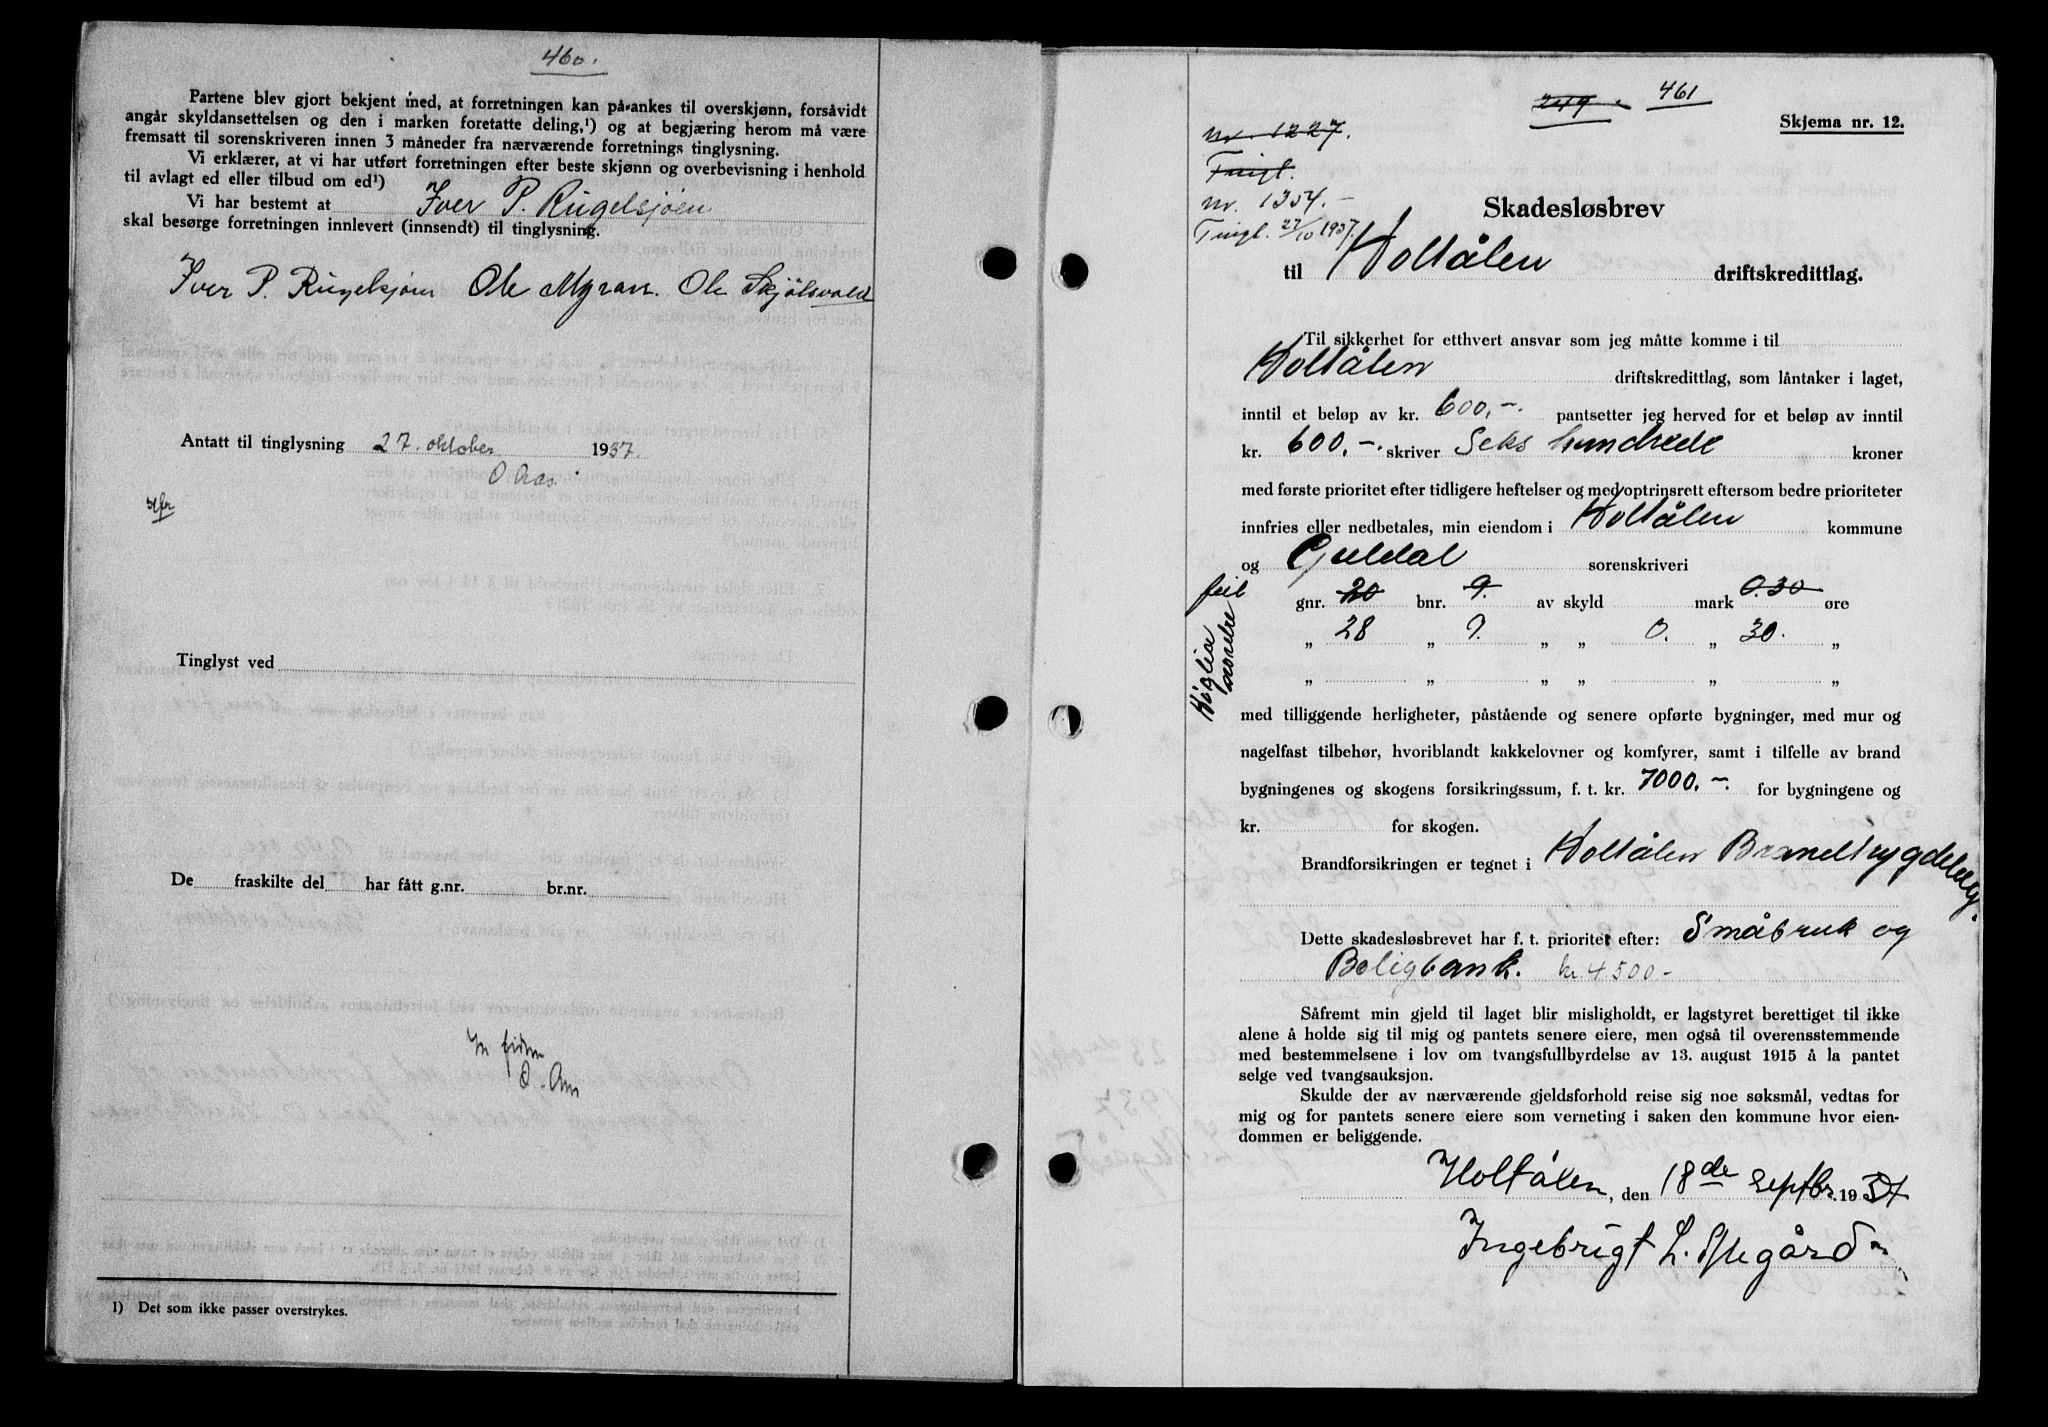 460.
Partene blev gjort bekjent med, at forretningen kan på-ankes til overskjønn, forsåvidt
angår skyldansettelsen og den i marken foretatte deling,¹) og at begjæring herom må være
fremsatt til sorenskriveren innen 3 måneder fra nærværende forretnings tinglysning.
Vi erklærer, at vi har utført forretningen efter beste skjønn og overbevisning i henhold
til avlagt ed eller tilbud om ed¹)
Vi har bestemt at Iver P. Rugelsjøen
skal besørge forretningen innlevert (innsendt) til tinglysning.
Iver P. Rugelsjøen Ole Myran. Ole Skjølsvold
Antatt til tinglysning 27. oktober 1937.
Tinglyst ved
De fraskilte del har fått g.nr. br.nr.
1) Det som ikke passer overstrykes.
249. 461
Skjema nr. 12.
nr. 1227.
Tingl.
nr. 1354.-
Tingl. 27/10 1937.
Skadesløsbrev
til Holtålen driftskredittlag.
Til sikkerhet for etthvert ansvar som jeg måtte komme i til
Holtålen driftskredittlag, som låntaker i laget,
inntil et beløp av kr. 600,-. pantsetter jeg herved for et beløp av inntil
kr. 600,-. skriver Seks hundrede kroner
med første prioritet efter tidligere heftelser og med optrinsrett eftersom bedre prioriteter
innfries eller nedbetales, min eiendom i Holtålen kommune
og Guldal sorenskriveri
feil gnr. 20 bnr. 9. av skyld mark 0.30 øre
„ 28 „ 9. „ „ 0. „ 30. „
„ „ „ „ „ „
med tilliggende herligheter, påstående og senere opførte bygninger, med mur og
nagelfast tilbehør, hvoriblandt kakkelovner og komfyrer, samt i tilfelle av brand
bygningenes og skogens forsikringssum, f. t. kr. 7000.-. for bygningene og
kr. for skogen.
Brandforsikringen er tegnet i Holtålen Brandbygdelag.
Dette skadesløsbrevet har f. t. prioritet efter: Småbruk og
Boligbank. kr 4500-
Såfremt min gjeld til laget blir misligholdt, er lagstyret berettiget til ikke
alene å holde sig til mig og pantets senere eiere, men også til overensstemmende
med bestemmelsene i lov om tvangsfullbyrdelse av 13. august 1915 å la pantet
selge ved tvangsauksjon.
Skulde der av nærværende gjeldsforhold reise sig noe søksmål, vedtas for
mig og for pantets senere eiere som verneting i saken den kommune hvor eien-
dommen er beliggende.
Holtålen, den 18de septbr. 1937
Ingebrigt L.